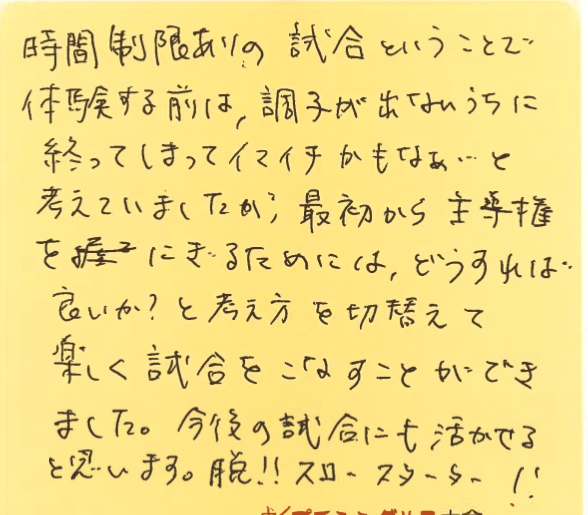 時間制限ありの試合ということで
体験する前は、調子が出ないうちに
終ってしまってイマイチかもなぁ…と
考えていましたが、最初から主導権
を握る にぎるためには、どうすれば
良いか?と考え方を切替えて
楽しく試合をこなすことができ
ました。今後の試合にも活かせる
と思います。脱!!スロースターター!!